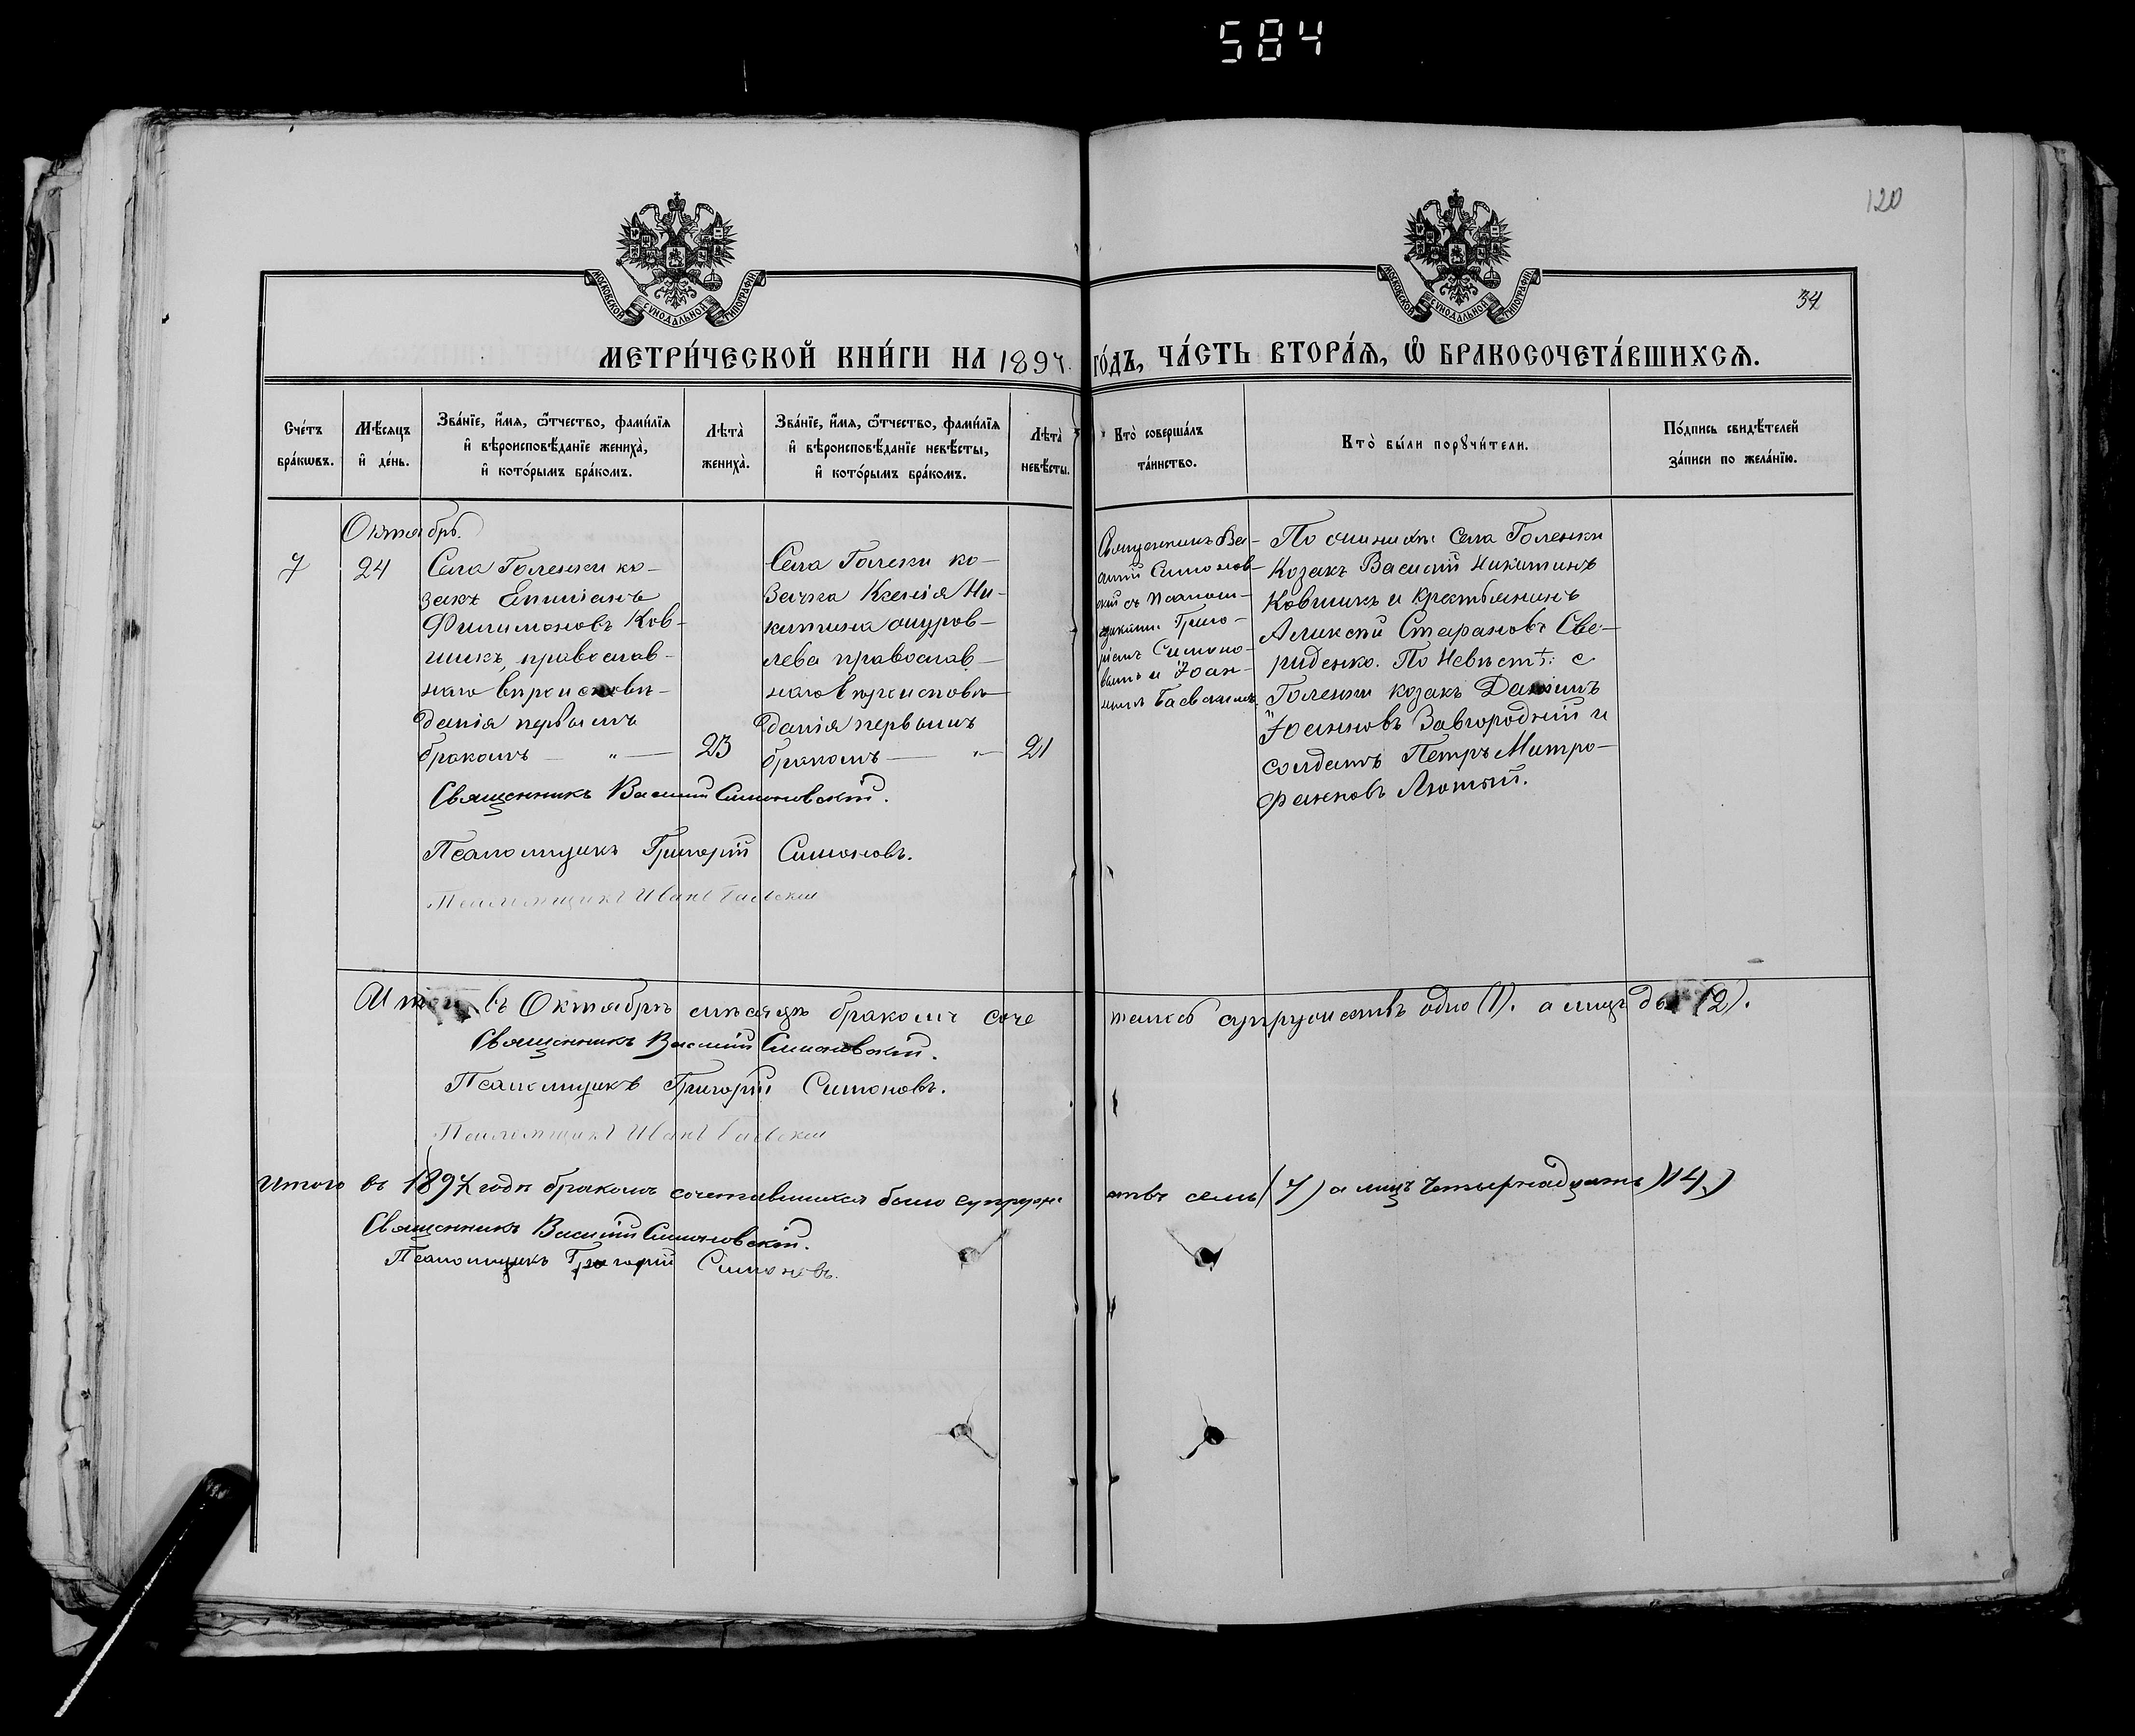 584
120
34
МОСКОВСКОЙ СѴНОДАЛЬНОЙ ТИПОГРАФІИ
МОСКОВСКОЙ СѴНОДАЛЬНОЙ ТИПОГРАФІИ
МЕТРИ́ЧЕСКОЙ КНИ́ГИ НА 1897. ГО́ДЪ, ЧА́СТЬ ВТОРА́Я, Ѽ БРАКОСОЧЕТА́ВШИХСѦ.
Сче́тъ бра́кѡвъ.
Мѣ́сѧцъ и҆ де́нь.
Зва́нїе, и҆́мѧ, ѻ҆́тчество, фами́лїѧ
и҆ вѣроисповѣ́данїе жениха̀,
и҆ кото́рымъ бра́комъ.
Лѣта̀ жениха̀.
Зва́нїе, и҆́мѧ, ѻ҆́тчество, фами́лїѧ
и҆ вѣроисповѣ́данїе невѣ́сты,
и҆ кото́рымъ бра́комъ.
Лѣта̀ невѣ́сты.
Кто̀ соверша́лъ
та́инство.
Кто̀ бы́ли порꙋчи́тели.
По́дпись свидѣ́телей
за́писи по жела́нїю.
Октябрь.
7
24
Села Голенки ко-
закъ
Филимоновъ Ков-
шикъ, православ-
наго вѣроисповѣ-
данія первымъ
бракомъ — „ —
23
Села Голенки ко-
зачка Ксенія Ни-
китина
лева православ-
наго вѣроисповѣ-
данія первымъ
бракомъ — „ —
21
Священникъ Ва-
силій Симонов-
скій съ псалом-
щиками Григо-
ріемъ Симоно-
вымъ и Іоан-
номъ Гаевскимъ
По женихѣ: Села Голенки
Козакъ Василій Никитинъ
Ковшикъ и крестьянинъ
Алексѣй Стефановъ Све-
риденко. По Невѣстѣ: с
Голенки козакъ Даніилъ
Іоанновъ Завгородній и
солдатъ Петръ Митро-
фановъ Лютый.
Священникъ Василій Симоновскій.
Псаломщикъ Григорій Симоновъ.
Псаломщикъ Иванъ Гаевскій
Итого въ Октябрѣ мѣсяцѣ бракомъ соче талось супружествъ одно (1). а лицъ два (2).
Священникъ Василій Симоновскій.
Псаломщикъ Григорій Симоновъ.
Псаломщикъ Иванъ Гаевскій
Итого въ 1897 годѣ бракомъ сочетавшихся было супруже ствъ семь (7) а лицъ четырнадцать (14.)
Священникъ Василій Симоновскій.
Псаломщикъ Григорій Симоновъ.